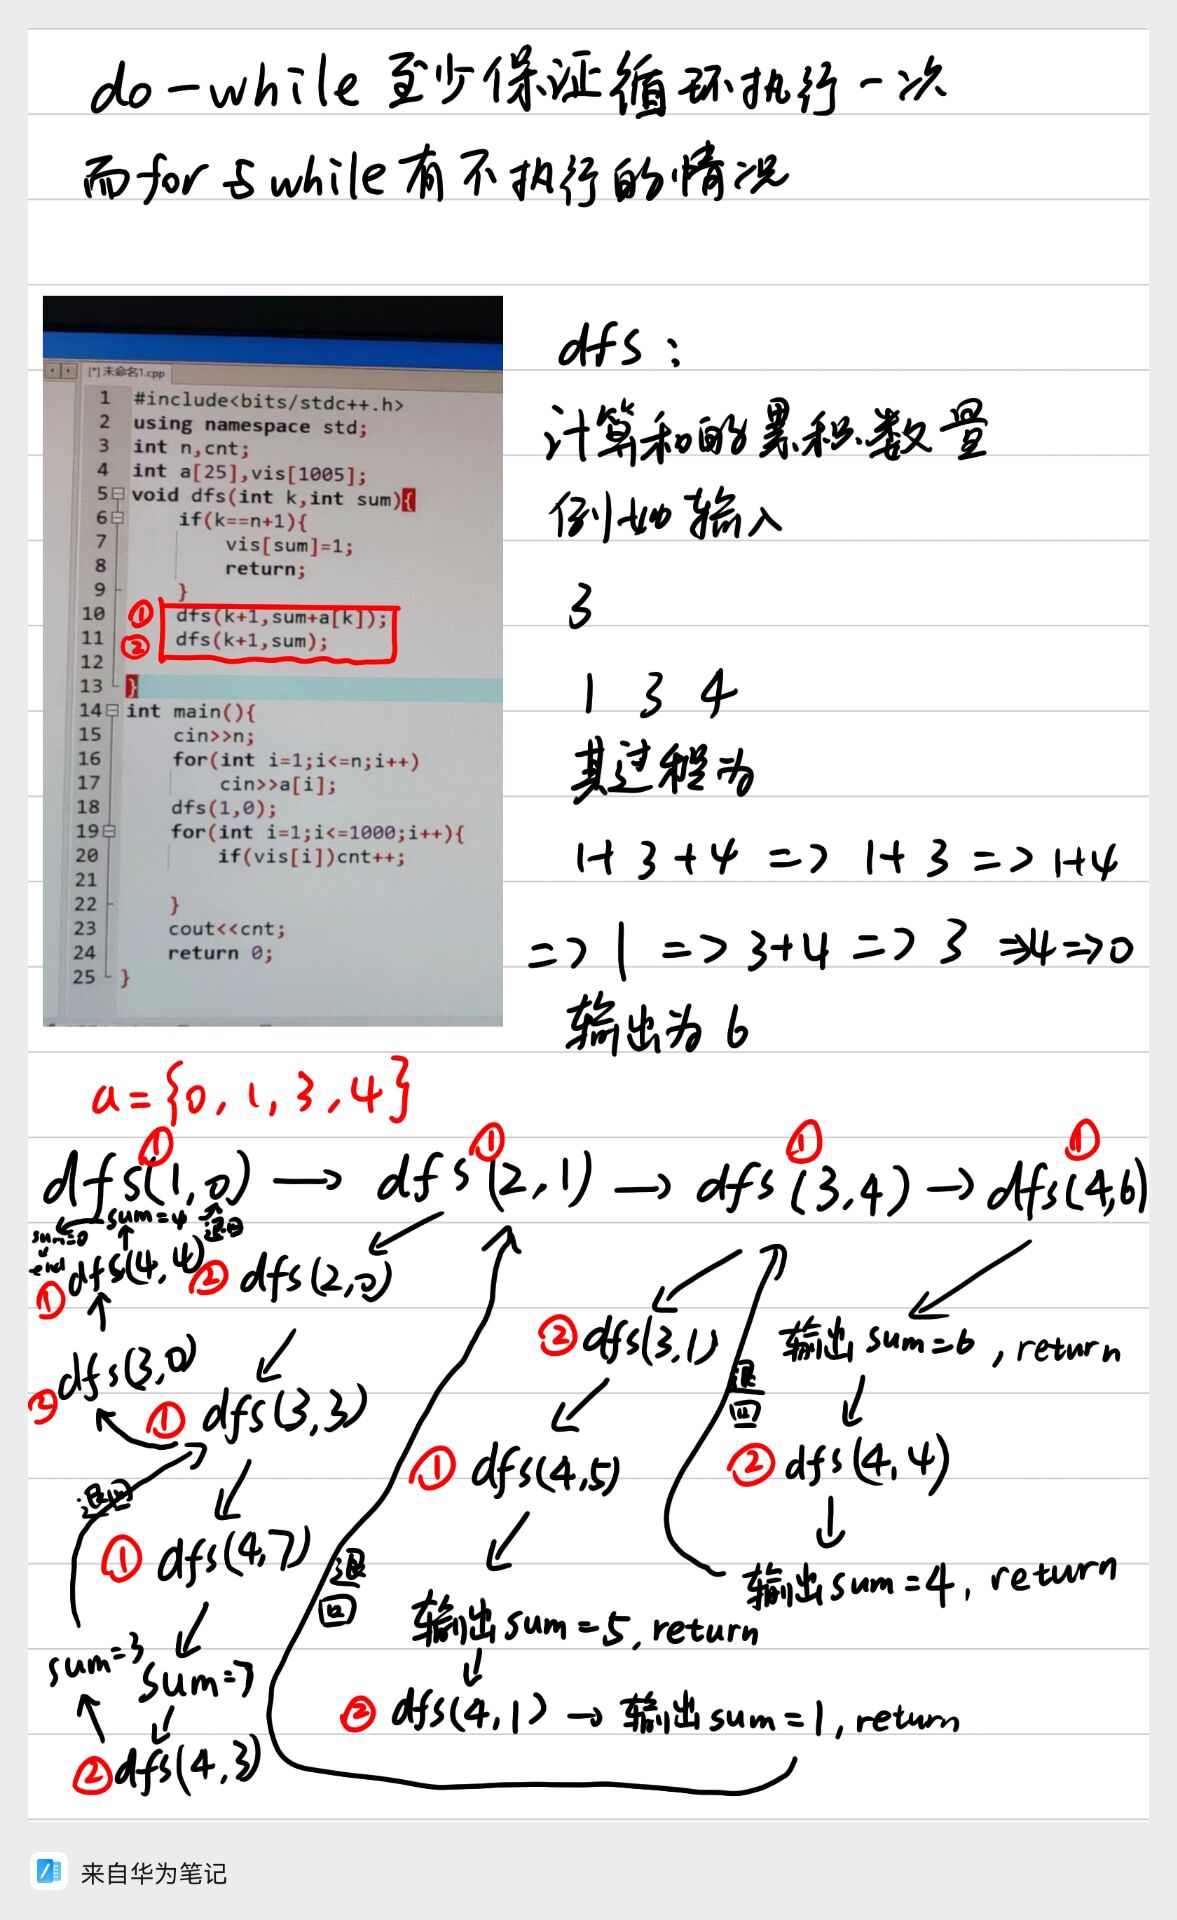 do-while 至少保证循环执行一次
而for与while有不执行的情况
[*] 未命名1.cpp
1 #include<bits/stdc++.h>
2 using namespace std;
3 int n,cnt;
4 int a[25],vis[1005];
5 void dfs(int k,int sum){
6 if(k==n+1){
7 vis[sum]=1;
8 return;
9 }
10 ① dfs(k+1,sum+a[k]);
11 ② dfs(k+1,sum);
12
13 }
14 int main(){
15 cin>>n;
16 for(int i=1;i<=n;i++)
17 cin>>a[i];
18 dfs(1,0);
19 for(int i=1;i<=1000;i++){
20 if(vis[i])cnt++;
21
22 }
23 cout<<cnt;
24 return 0;
25 }
dfs:
计算和的累积数量
例如输入
3
1 3 4
其过程为
1+3+4 => 1+3 => 1+4
=> 1 => 3+4 => 3 =>4=>0
输出为 6
a={0,1,3,4}
① ① ① ①
dfs(1,0) → dfs(2,1) → dfs(3,4) → dfs(4,6)
sum=0 ← sum=4 退回
end
① dfs(4,4) ② dfs(2,0)
② dfs(3,1) 输出 sum=6, return
② dfs(3,0)
① dfs(3,3)
退回
① dfs(4,5) ② dfs(4,4)
退回
① dfs(4,7)
退回
输出sum=4, return
输出sum=5, return
sum=3 sum=7
② dfs(4,1) → 输出sum=1, return
② dfs(4,3)
来自华为笔记